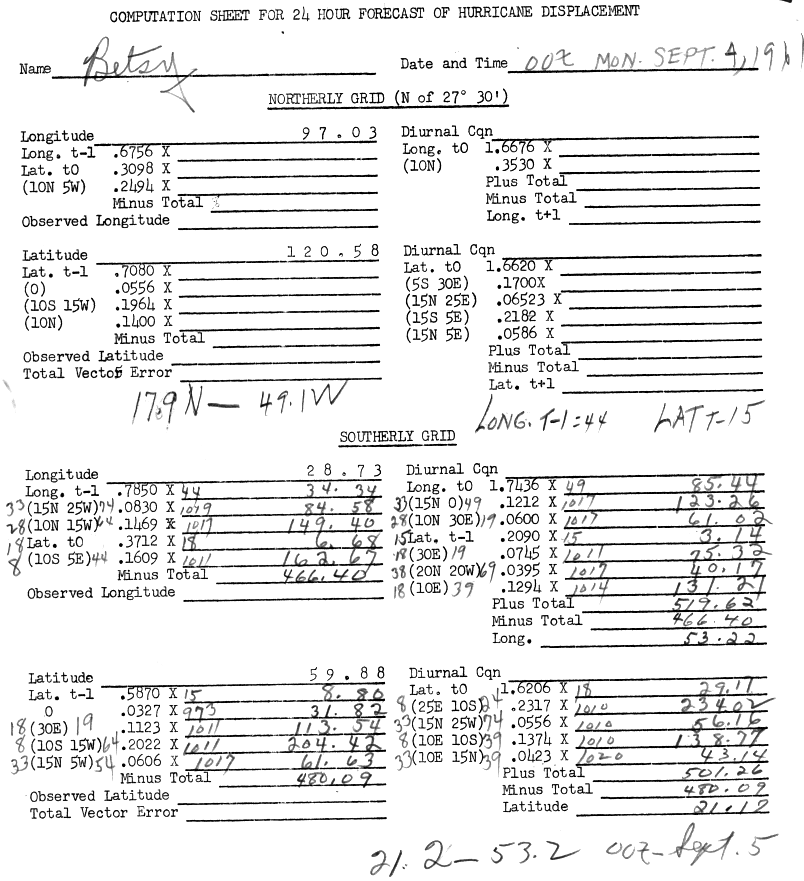 COMPUTATION SHEET FOR 24 HOUR FORECAST OF HURRICANE DISPLACEMENT
Name Betsy Date and Time 00Z MON. SEPT. 4, 1961
NORTHERLY GRID (N of 27° 30')
Longitude 97.03 Diurnal Cqn
Long. t-1 .6756 X Long. t0 1.6676 X
Lat. t0 .3098 X (10N) .3530 X
(10N 5W) .2494 X Plus Total
Minus Total Minus Total
Observed Longitude Long. t+1
Latitude 120.58 Diurnal Cqn
Lat. t-1 .7080 X Lat. t0 1.6620 X
(0) .0556 X (5S 30E) .1700X
(10S 15W) .1964 X (15N 25E) .06523 X
(10N) .1400 X (15S 5E) .2182 X
Minus Total (15N 5E) .0586 X
Observed Latitude Plus Total
Total Vector Error Minus Total
Lat. t+1
17.9 N — 49.1W LONG. T-1=44 LAT T-15
SOUTHERLY GRID
Longitude 28.73 Diurnal Cqn
Long. t-1 .7850 X 44 34.34 Long. t0 1.7436 X 49 85.44
33 (15N 25W) 74 .0830 X 1019 84.58 33 (15N 0) 49 .1212 X 1017 123.26
28 (10N 15W) 64 .1469 X 1017 149.40 28 (10N 30E) 19 .0600 X 1017 61.02
18 Lat. t0 .3712 X 18 6.68 15 Lat. t-1 .2090 X 15 3.14
8 (10S 5E) 44 .1609 X 1011 162.67 18 (30E) 19 .0745 X 1011 75.32
Minus Total 466.40 38 (20N 20W) 69 .0395 X 1017 40.17
Observed Longitude 18 (10E) 39 .1294 X 1014 131.21
Plus Total 519.62
Minus Total 466.40
Long. 53.22
Latitude 59.88 Diurnal Cqn
Lat. t-1 .5870 X 15 8.80 Lat. t0 1.6206 X 18 29.17
0 .0327 X 973 31.82 8 (25E 10S) 24 .2317 X 1010 234.02
18 (30E) 19 .1123 X 1011 113.54 33 (15N 25W) 74 .0556 X 1010 56.16
8 (10S 15W) 64 .2022 X 1011 204.42 8 (10E 10S) 39 .1374 X 1010 138.77
33 (15N 5W) 54 .0606 X 1017 61.63 33 (10E 15N) 39 .0423 X 1020 43.14
Minus Total 480.09 Plus Total 501.26
Observed Latitude Minus Total 480.09
Total Vector Error Latitude 21.17
21.2 — 53.2 00Z — Sept. 5